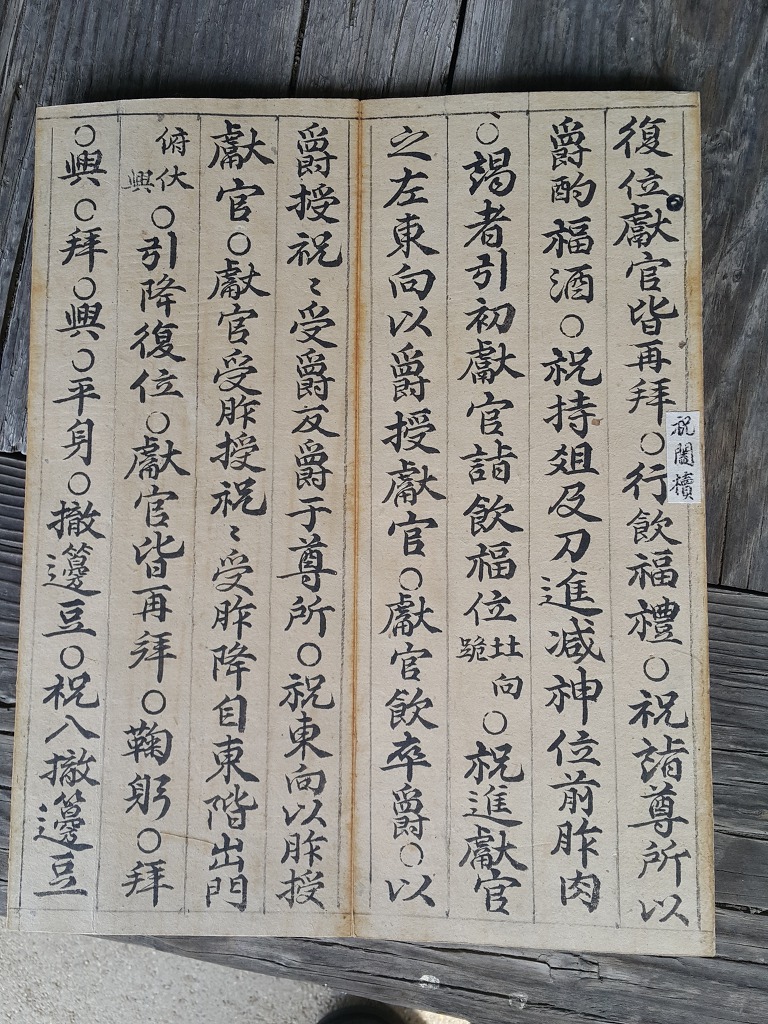 復位獻官皆再拜○行飮福禮○祝詣尊所以
祝闔櫝
爵酌福酒○祝持俎及刀進减神位前胙肉
○謁者引初獻官詣飮福位北向跪○祝進獻官
之左東向以爵授獻官○獻官飮卒爵○以
爵授祝〻受爵反爵于尊所○祝東向以胙授
獻官○獻官受胙授祝〻受胙降自東階出門
俯伏興○引降復位○獻官皆再拜○鞠躬○拜
○興○拜○興○平身○撤籩豆○祝入撤籩豆